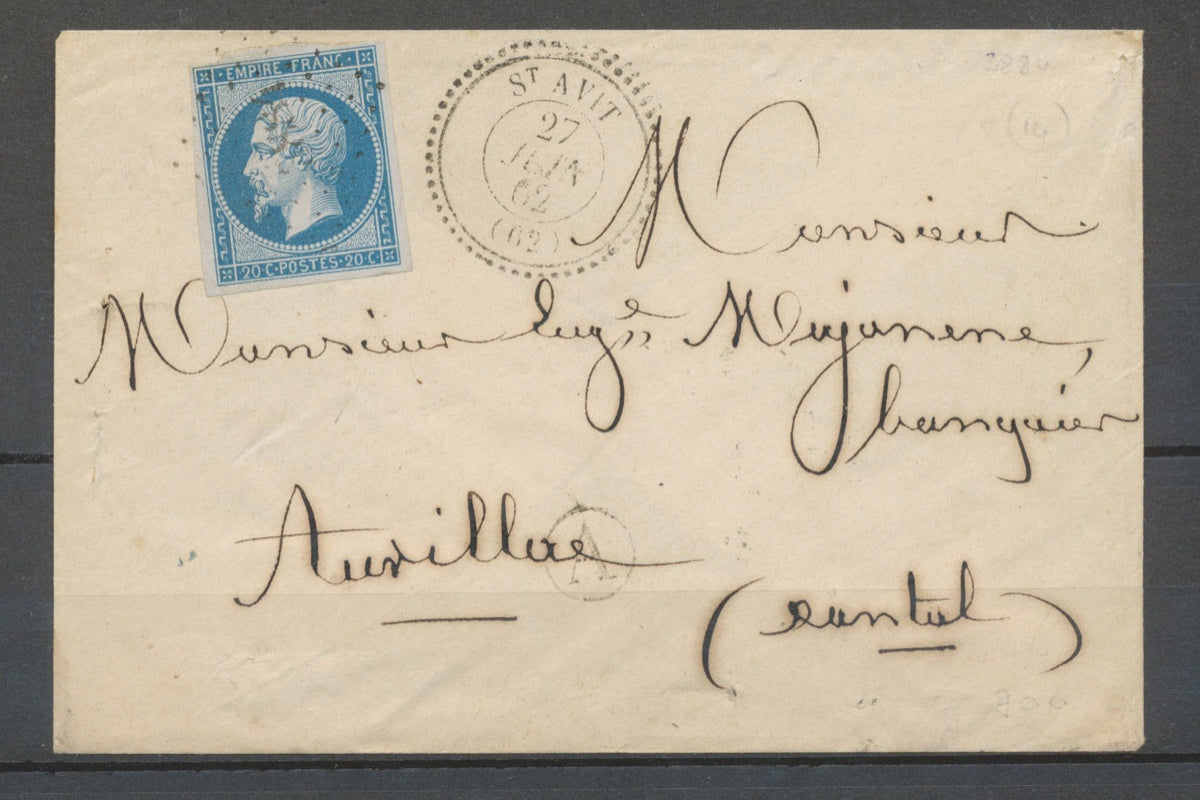 EMPIRE FRANC.
20·C·POSTES·20·C
ST AVIT
27
JUIN
62
(62)
Monsieur
Monsieur Eugène Majonenc,
banquier
Aurillac
A
(Cantal)
700